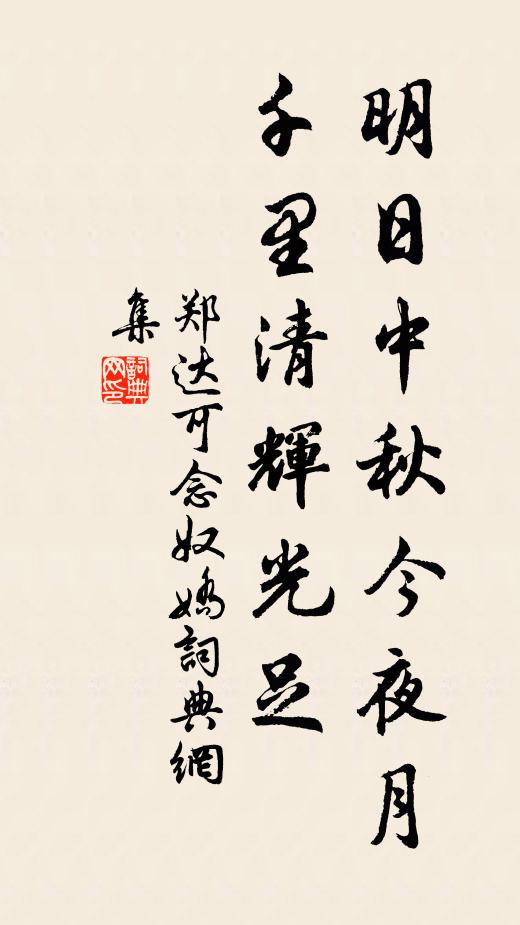 明日中秋今夜月
千里清輝光足
郑达可念奴嬌詞典網
集
詞典
网印